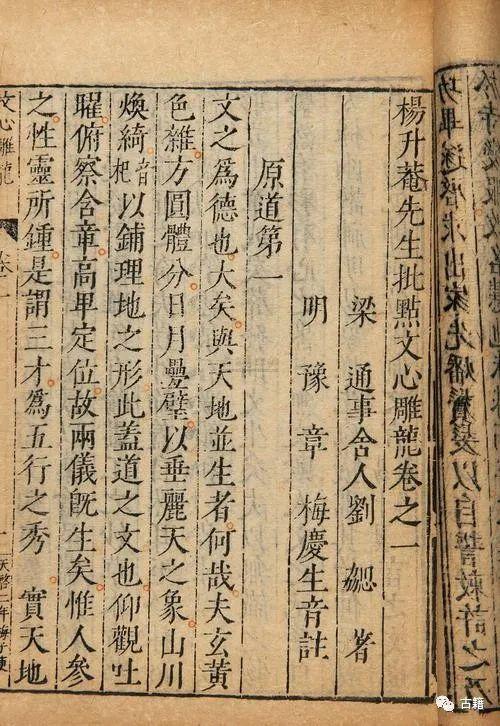 楊升菴先生批點文心雕龍卷之一
梁 通事舍人劉 勰 著
明 豫 章 梅慶生音註
原道第一
文之爲德也大矣與天地並生者何哉夫玄黃
色雜方圓體分日月疊璧以垂麗天之象山川
煥綺杷音以鋪理地之形此蓋道之文也仰觀吐
曜俯察含章高卑定位故兩儀旣生矣惟人參
之性靈所鍾是謂三才爲五行之秀 實天地
文心雕龍
卷一
一
天啓二年梅子庚
古籍